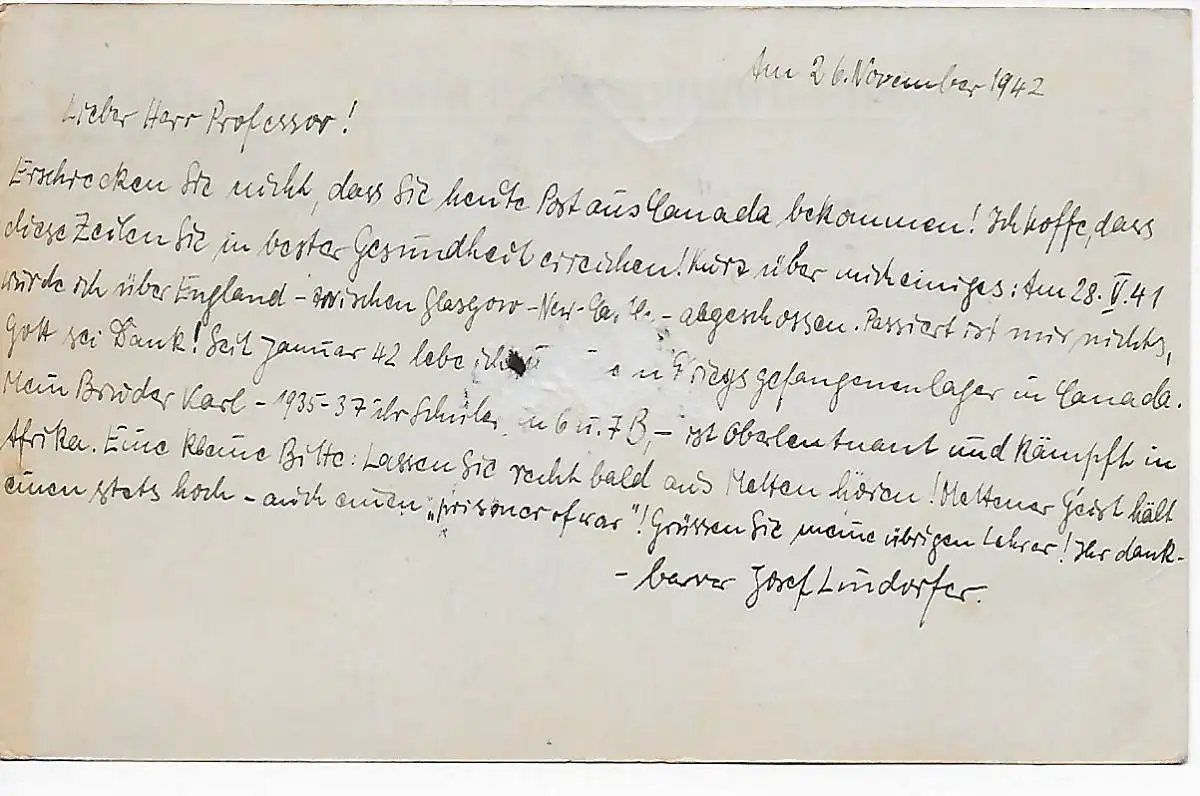 Am 26. November 1942
Lieber Herr Professor!
Erschrecken Sie nicht, dass Sie heute Post aus Canada bekommen! Ich hoffe, dass
diese Zeilen Sie in bester Gesundheit erreichen! Kurz über mich einiges: Am 28. V. 41
wurde ich über England – zwischen Glasgow – New- – abgeschossen. Passiert ist mir nichts,
Gott sei Dank! Seit Januar 42 lebe ich Kriegsgefangenenlager in Canada.
Mein Bruder Karl – 1935-37 ihr Schüler in 6 u. 7 B, – ist Oberleutnant und kämpft in
Afrika. Eine kleine Bitte: Lassen Sie recht bald aus Metten hören! Mettener Geist hält
einen stets hoch – auch einen „prisoner of war"! Grüssen Sie meine übrigen Lehrer! Ihr dank-
- barer Josef Lindorfer.